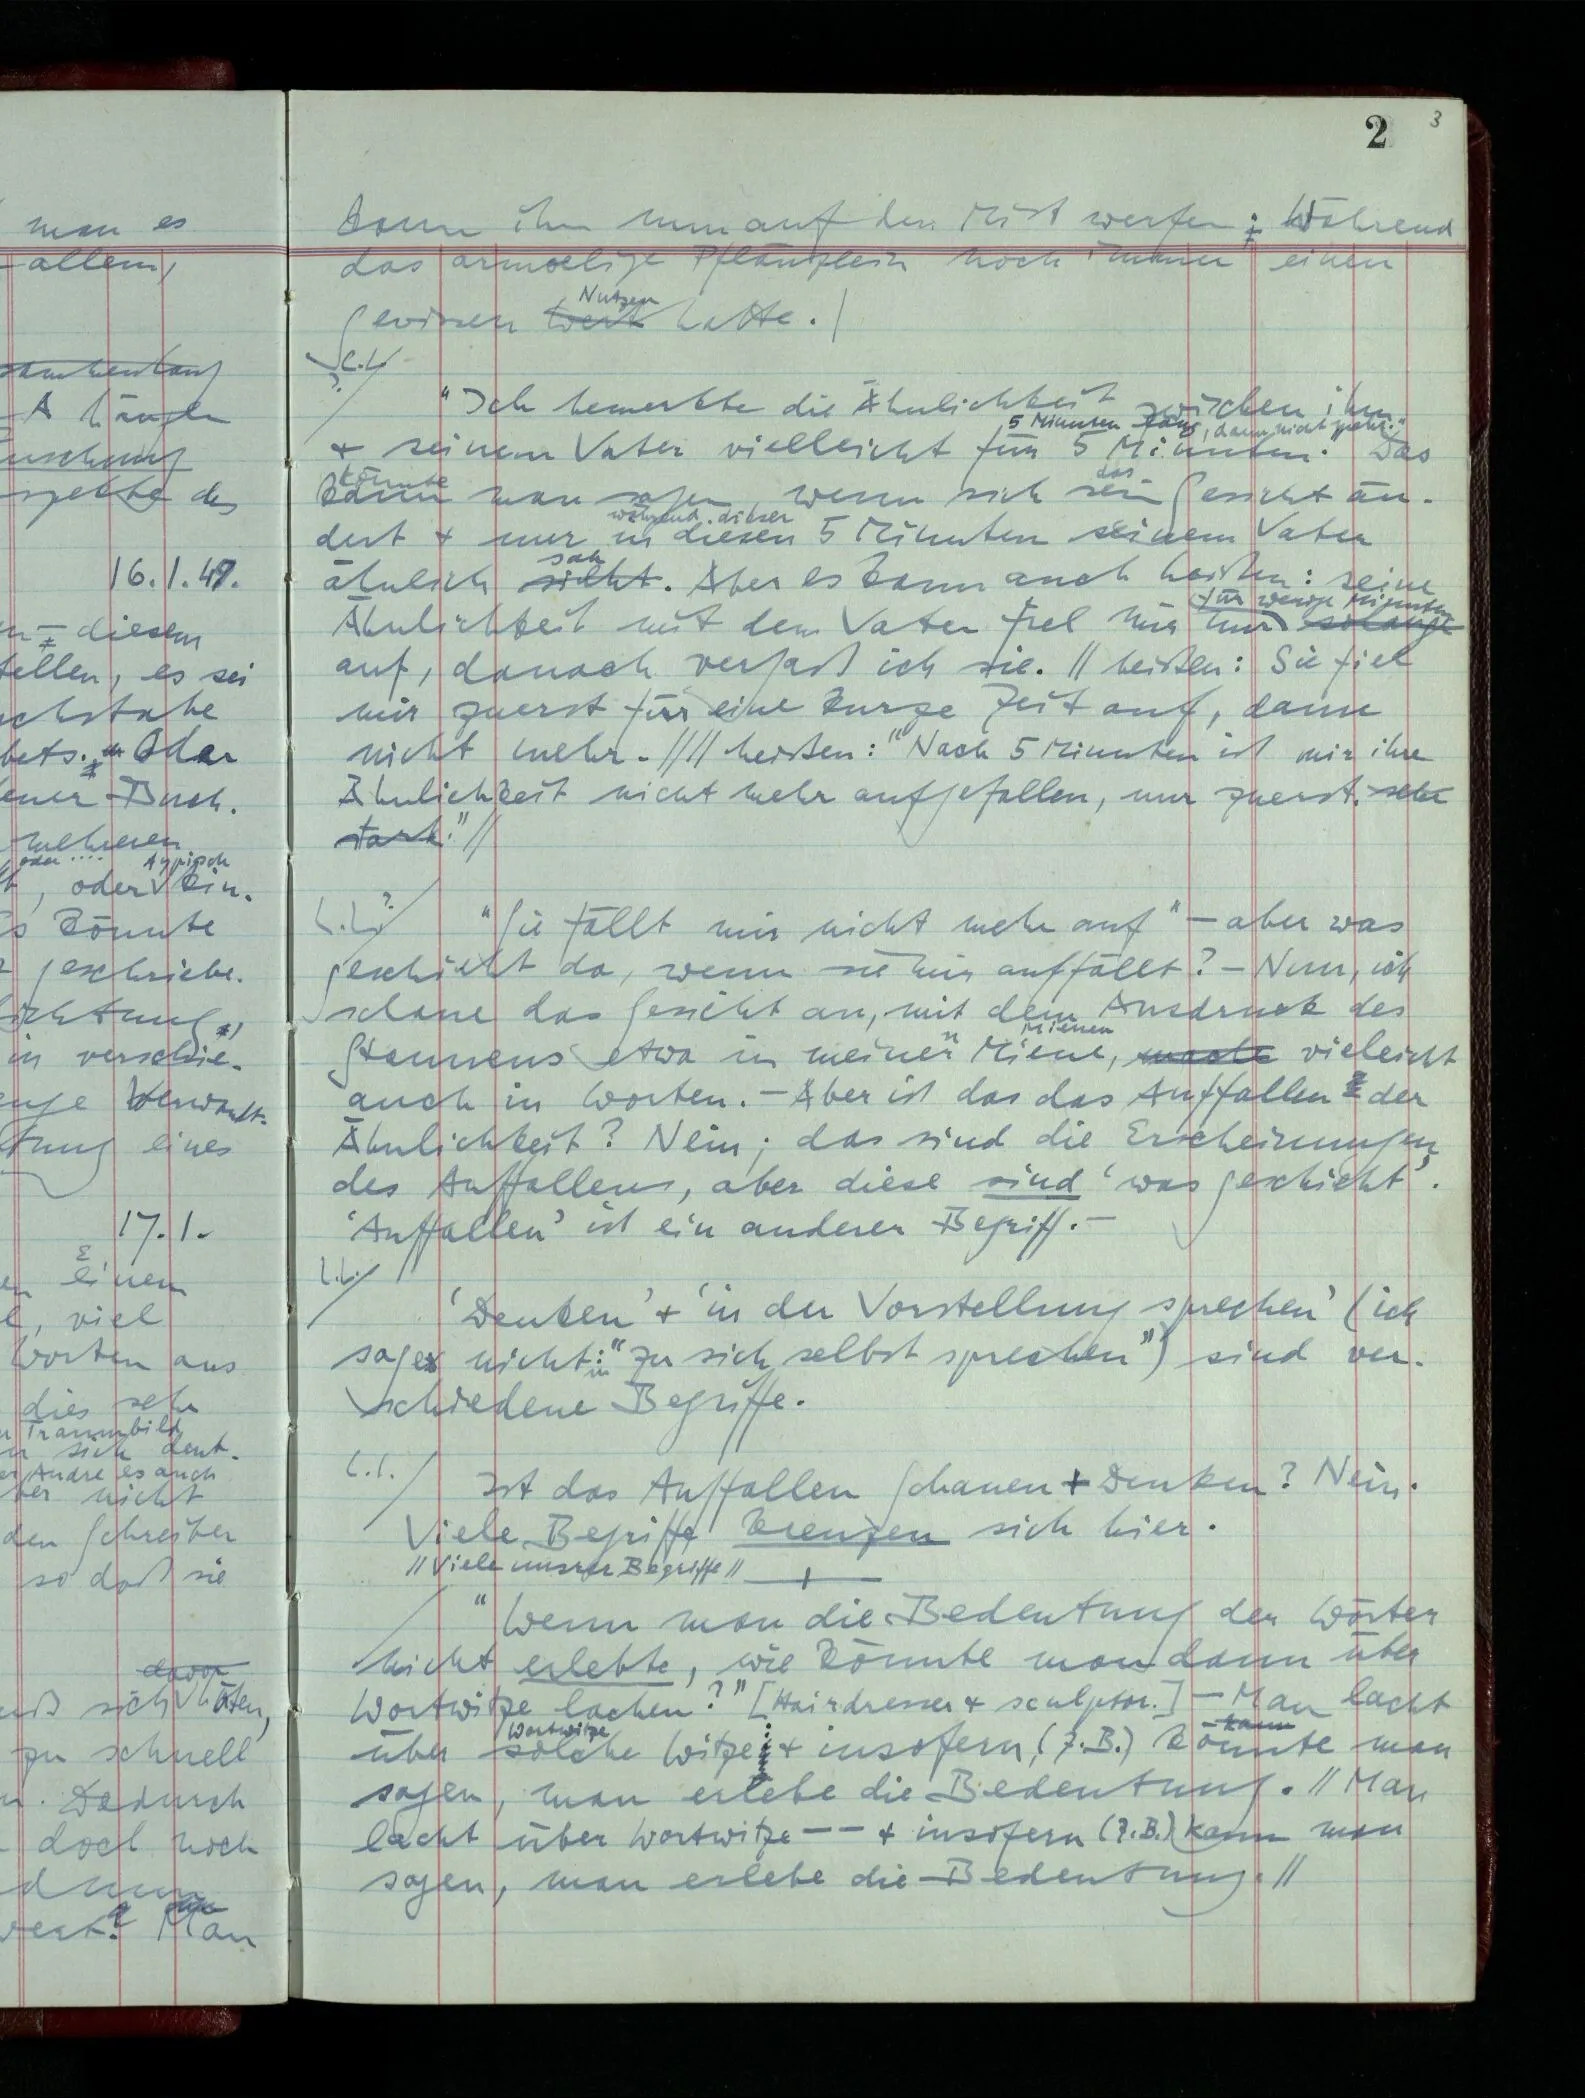 man es
allem,
A hängen
16.1.49.
diesem
stellen, es sei
Oder
Buch.
mehreren
oder .... typisch
, oder ein-
könnte
geschrieben.
in verschie-
eines
17.1.
einem
, viel
Worten aus
dies sehr
Traumbild
sich deut-
Andre es auch
nicht
den Schreiber
so daß sie
davor
sich hüten,
zu schnell
Dadurch
doch noch
Man
2
3
kann ihn nun auf den Mist werfen; während
das armselige Pflänzlein noch immer einen
Nutzen
gewissen Wert hatte. |
"Ich bemerkte die Ähnlichkeit zwischen ihm
5 Minuten lang, dann nicht mehr."
+ seinem Vater vielleicht für 5 Minuten. Das
könnte das
kann man sagen, wenn sich sein Gesicht än-
während dieser
dert + nur in diesen 5 Minuten seinem Vater
sah
ähnlich sieht. Aber es kann auch heißen: seine
für wenige Minuten
Ähnlichkeit mit dem Vater fiel mir nur solange
auf, danach vergaß ich sie. // heißen: Sie fiel
mir zuerst für eine kurze Zeit auf, dann
nicht mehr. // // heißen: "Nach 5 Minuten ist mir ihre
Ähnlichkeit nicht mehr aufgefallen, nur zuerst. sehr
stark." //
"Sie fällt mir nicht mehr auf" — aber was
geschieht da, wenn sie mir auffällt? — Nun, ich
schaue das Gesicht an, mit dem Ausdruck des
Mienen
Staunens etwa in meiner Miene, vieleicht
auch in Worten. — Aber ist das das Auffallen der
Ähnlichkeit? Nein; das sind die Erscheinungen
des Auffallens, aber diese sind 'was geschieht'.
'Auffallen' ist ein anderer Begriff. —
'Denken' + 'in der Vorstellung sprechen' (ich
sage nicht: "zu sich selbst sprechen") sind ver-
schiedene Begriffe.
Ist das Auffallen Schauen + Denken? Nein.
Viele Begriffe kreuzen sich hier.
// Viele unsrer Begriffe //
"Wenn man die Bedeutung der Wörter
nicht erlebte, wie könnte man dann über
Wortwitze lachen?" [Hairdresser + sculptor.] — Man lacht
Wortwitze kann
über solche Witze: + insofern, (z.B.) könnte man
sagen, man erlebe die Bedeutung. // Man
lacht über Wortwitze — — + insofern (z.B.) kann man
sagen, man erlebe die Bedeutung. //